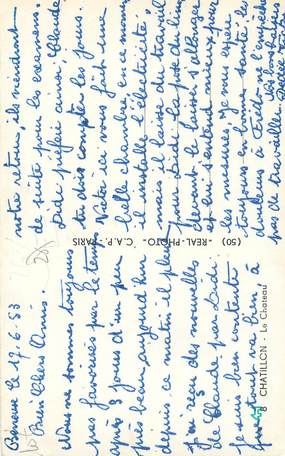 Besseve le 17-6-53
Bien Chers Amis.
Nous ne sommes toujours
pas favorisés par le temps
après 3 jours d'un peu
près beau aujourd'hui
depuis ce matin il pleut
J'ai reçu des nouvelle
de Claude par Didi
je suis bien contente
que tout va bien à
notre retour, ils viendront
de suite pour les examens.
Didi préfère ainsi, Claude
tu dois compter les jours.
Victor ici nous fait une
belle chambre, en ce moment
il installe l'électricité,
mais il laisse du travail
pour Didi la pose du
devant le laisser s'allonger
et lui s'entend mieux pour
les mesures. Je vous espère
toujours en bonne santé, les
douleurs à Dédé ne l'empêche
pas de travailler.
8 CHATILLON - Le Chateau
(50) - REAL-PHOTO - C.A.P. - PARIS